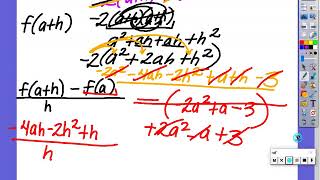 f(a+h)
a²+ah+ah+h²
-2(a²+2ah+h²)
-2a²-4ah-2h²+a+h-3
f(a+h) - f(a)
h
= (2a²+a-3)
+2a²-a+3
-4ah-2h²+h
h